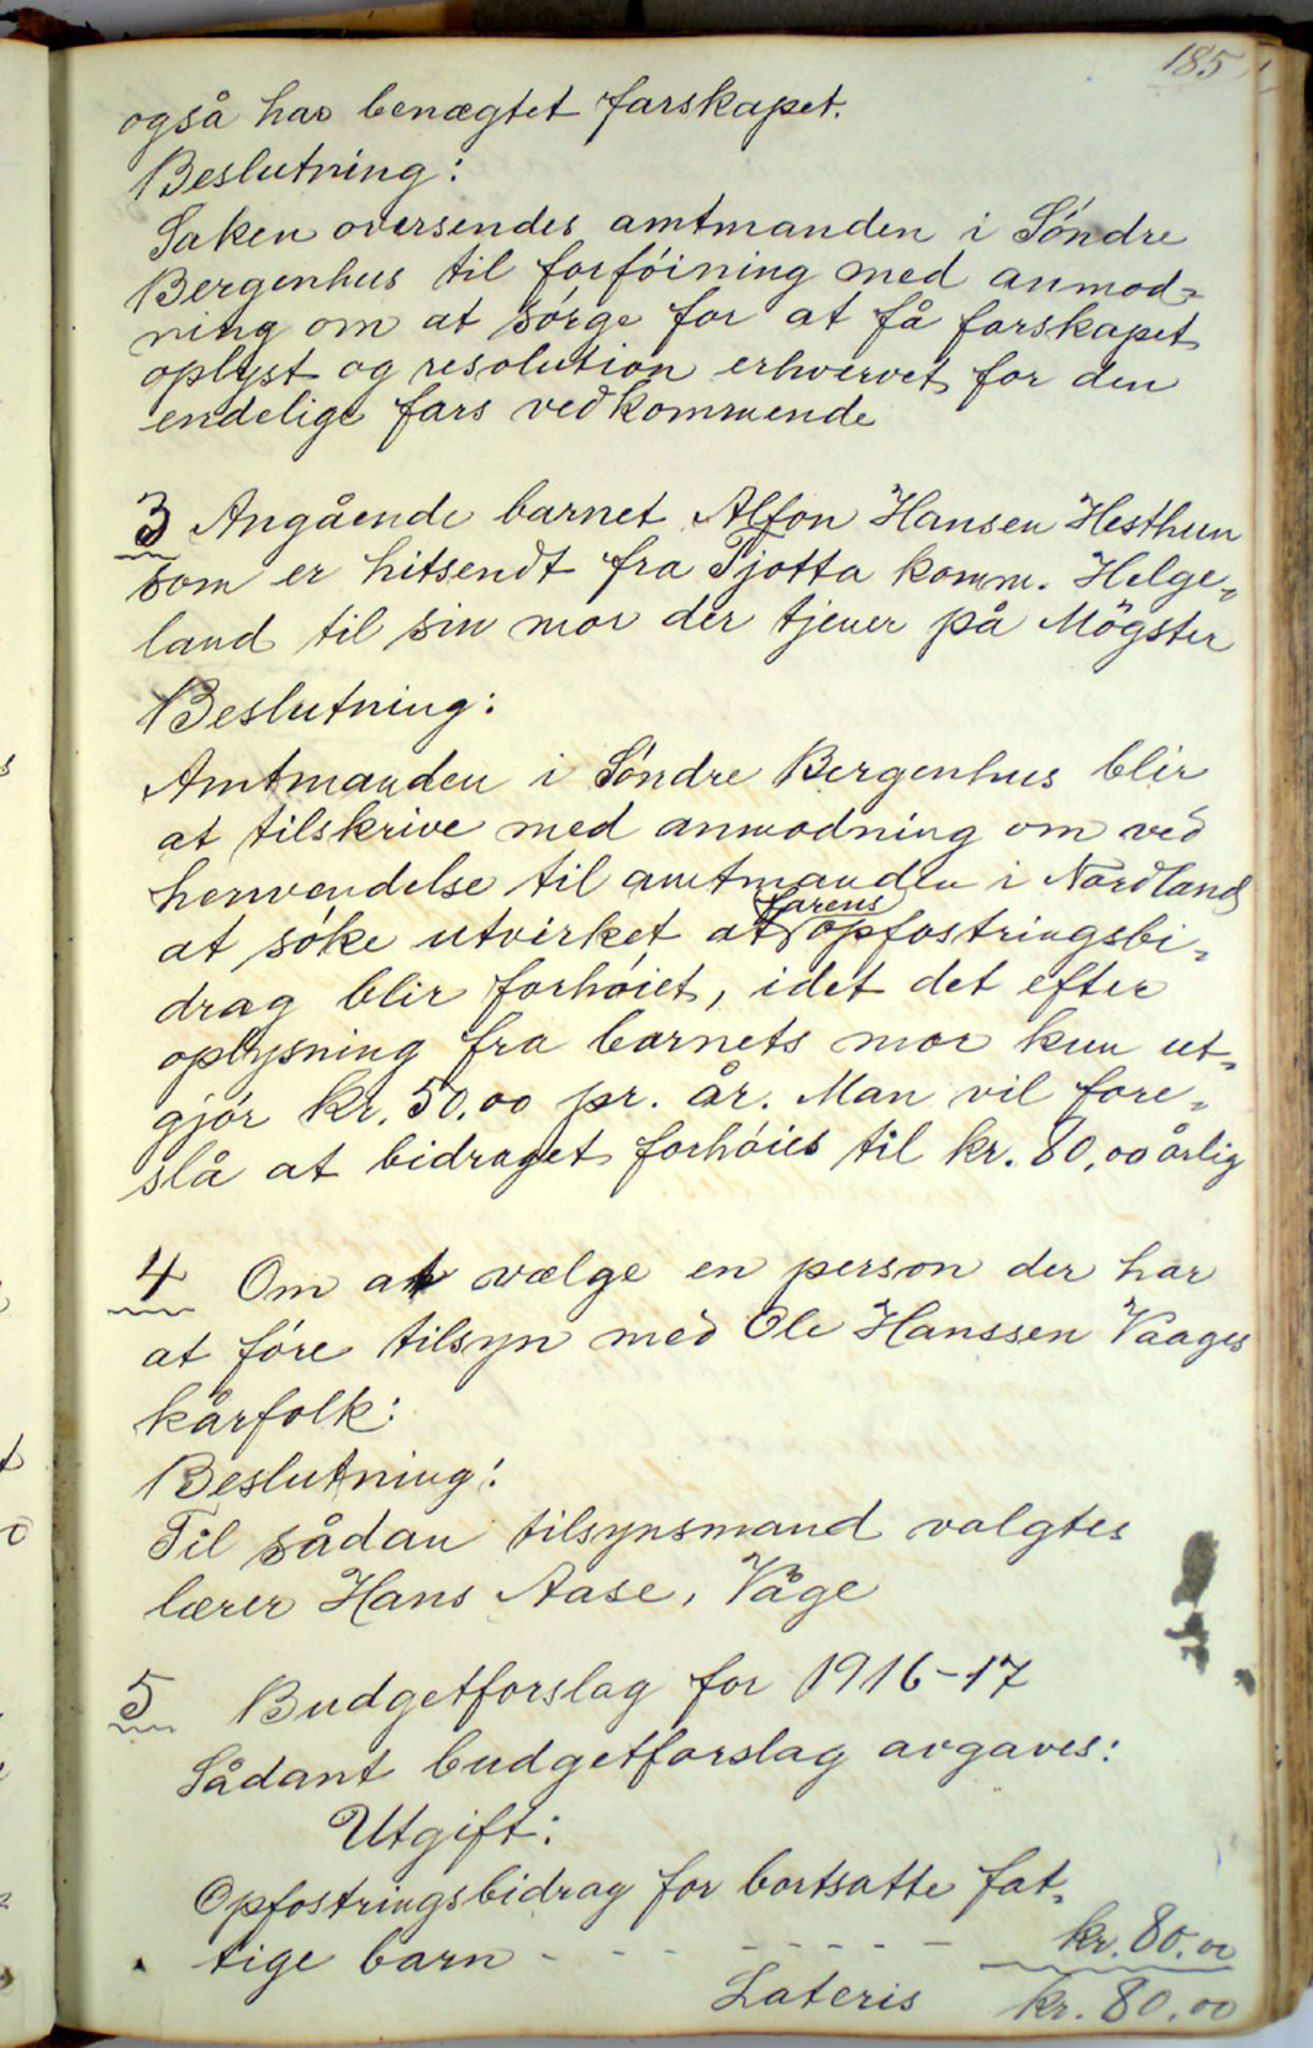 185
også har benægtet farskapet.
Beslutning:
Saken oversendes amtmanden i Söndre
Bergenhus til forföining med anmod-
ning om at sörge for at få farskapet
oplyst og resolution erhvervet for den
endelige fars vedkommende
3 Angående barnet Alfon Hansen Hesthun
som er hitsendt fra Tjotta komm. Helge-
land til sin mor der tjener på Mögster
Beslutning:
Amtmanden i Söndre Bergenhus blir
at tilskrive med anmodning om ved
henvendelse til amtmanden i Nordland
farens
at söke utvirket at opfostringsbi-
drag blir forhöiet, idet det efter
oplysning fra barnets mor kun ut-
gjör kr. 50.00 pr. år. Man vil fore-
slå at bidraget forhöies til kr. 80,00 årlig
4 Om at vælge en person der har
at före tilsyn med Ole Hanssen Vaages
kårfolk:
Beslutning:
Til sådan tilsynsmand valgtes
lærer Hans Aase, Våge
5 Budgetforslag for 1916-17
Sådant budgetforslag avgaves:
Utgift:
Opfostringsbidrag for bortsatte fat-
tige barn - - - - - - - - - kr. 80.00
Lateris kr. 80.00